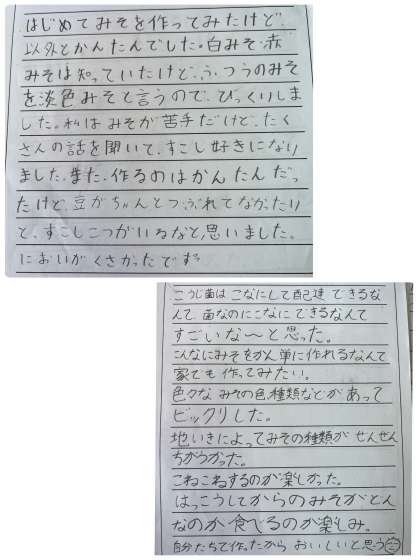 はじめてみそを作ってみたけど、
以外とかんたんでした。白みそ、赤
みそは知っていたけど、ふつうのみそ
を淡色みそと言うので、びっくりしま
した。私はみそが苦手だけど、たく
さんの話を聞いて、すこし好きになり
ました。また、作るのはかんたんだっ
たけど、豆がちゃんとつぶれてなかったり
と、すこしこつがいるなと思いました。
においがくさかったです
こうじ菌はこなにして配達できるな
んて、菌なのにこなにできるなんて
すごいな〜と思った。
こんなにみそをかん単に作れるなんて
家でも作ってみたい。
色々なみその色、種類などがあって
ビックリした。
地いきによってみその種類がぜんぜん
ちがうかった。
こねこねするのが楽しかった。
はっこうしてからのみそがどん
なのか食べるのが楽しみ。
自分たちで作ったから おいしいと思う